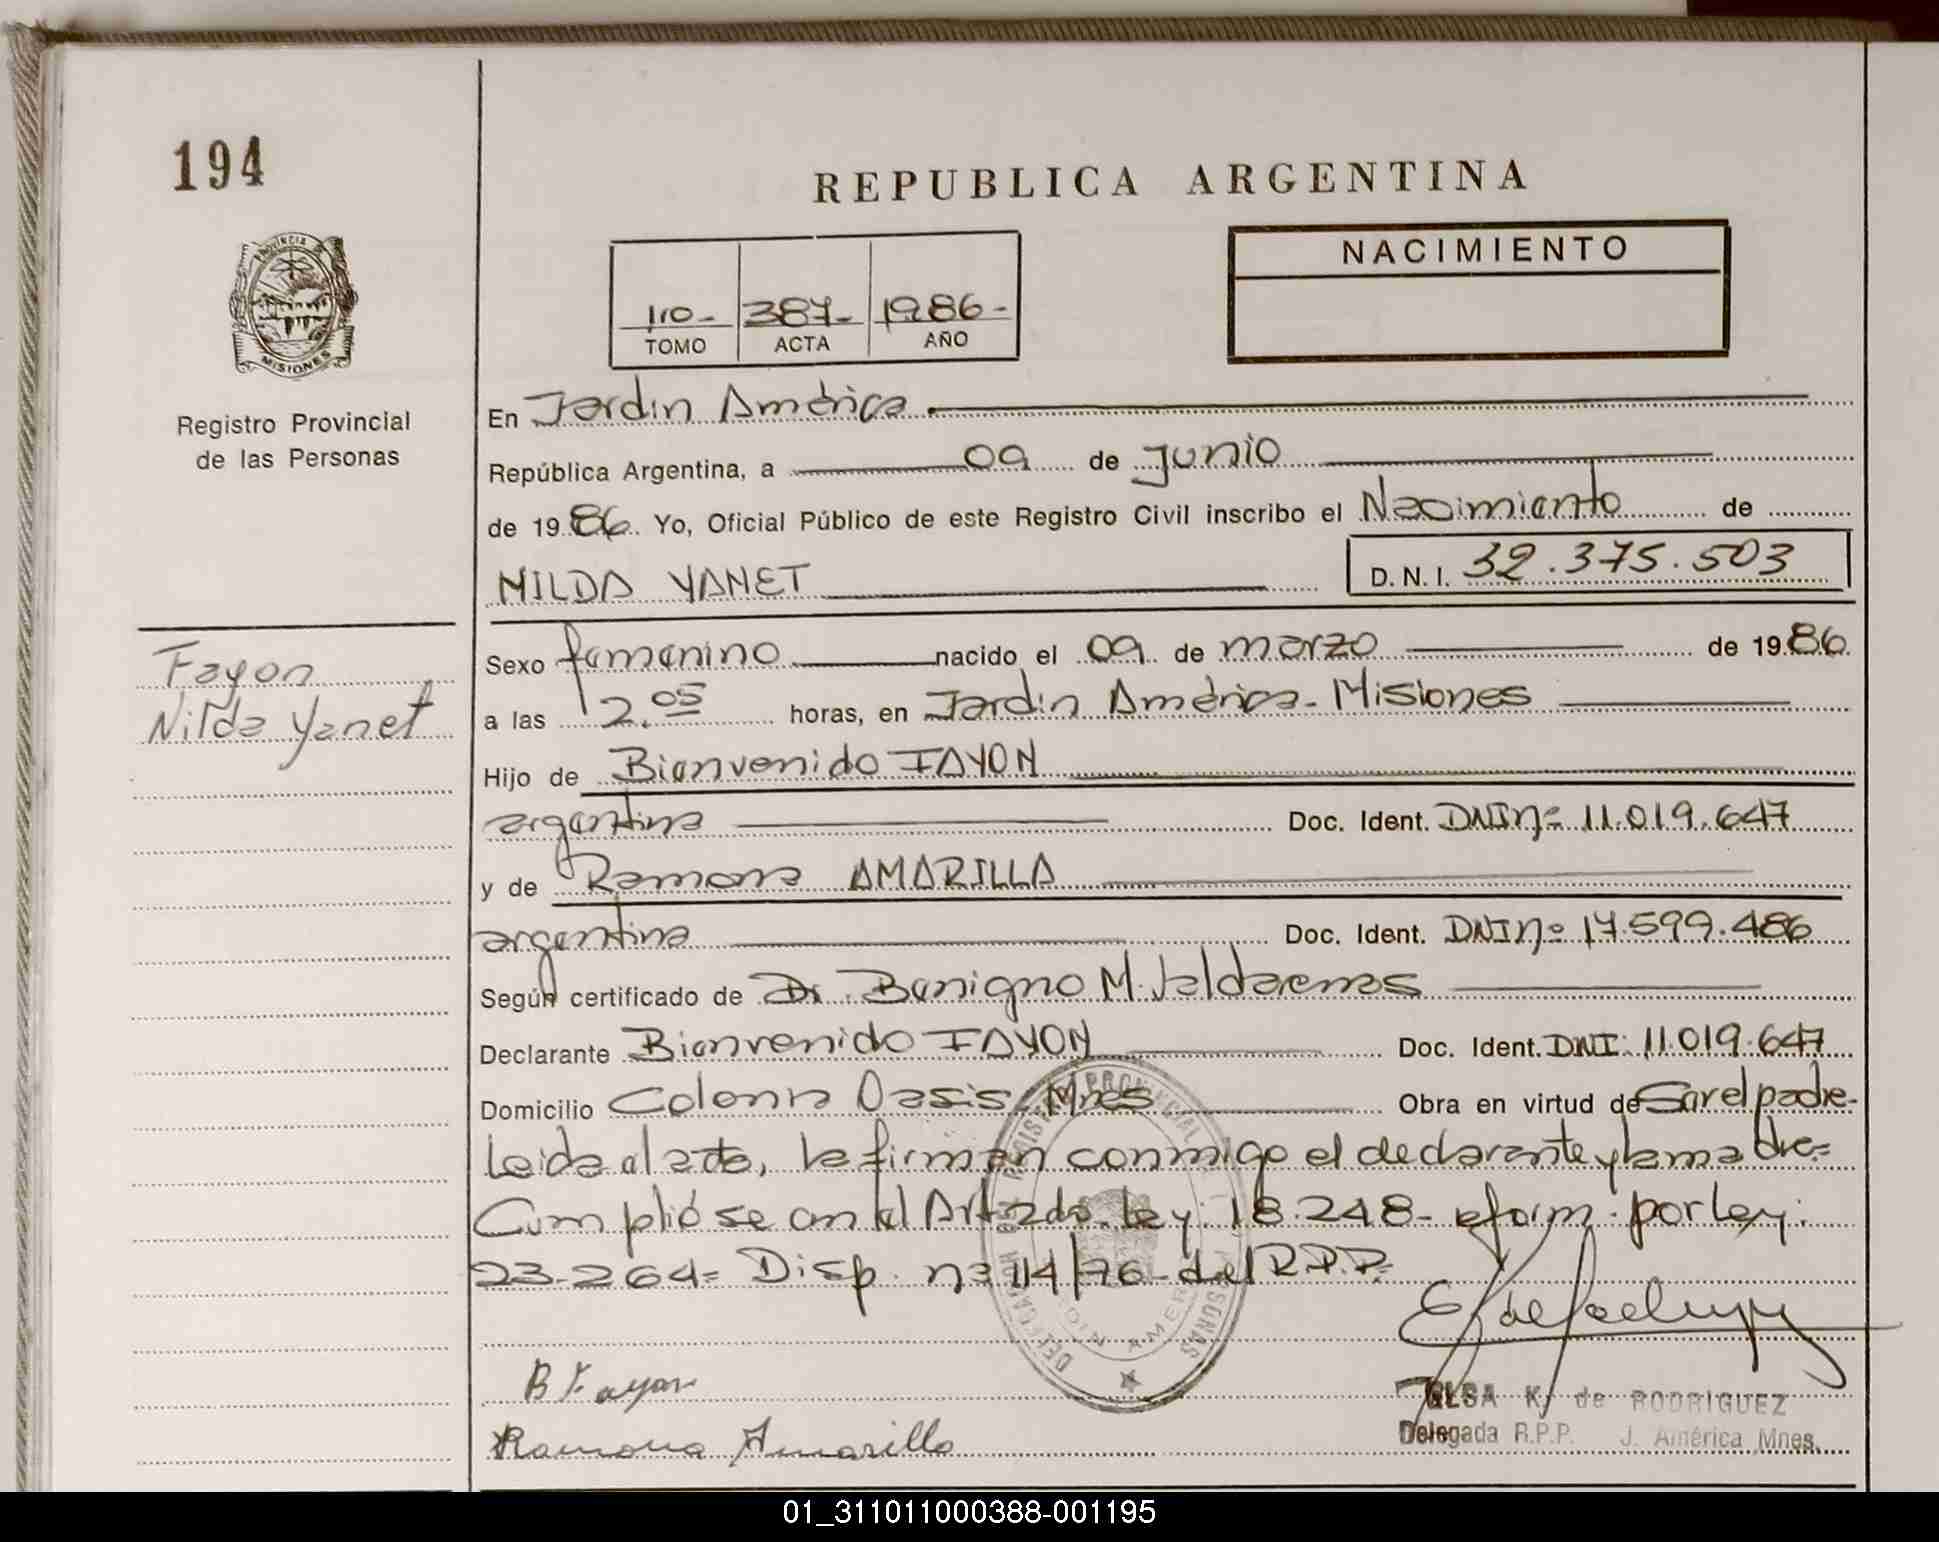 194
REPUBLICA ARGENTINA
NACIMIENTO
1ro- 387- 1986-
TOMO ACTA AÑO
PROVINCIA DE MISIONES
Registro Provincial
de las Personas
En Jardin América
República Argentina, a 09 de junio
de 1986. Yo, Oficial Público de este Registro Civil inscribo el Nacimiento de
NILDA YANET D. N. I. 32.375.503
Fayon
Nilda Yanet
Sexo femenino nacido el 09 de marzo de 1986
a las 12.05 horas, en Jardin América- Misiones
Hijo de Bienvenido FAYON
argentina Doc. Ident. DNI nº 11.019.647
y de Ramona AMARILLA
argentina Doc. Ident. DNI nº 17.599.486
Según certificado de Dr. Benigno M. Valdarenas
Declarante Bienvenido FAYON Doc. Ident. DNI: 11.019.647
Domicilio Colonia Oasis, Mnes Obra en virtud de Ser el padre-
Leida el acta, la firman conmigo el declarante y la madre=
Cumplióse con el Art 2do. Ley 18.248- reform. por Ley:
23-264= Disp. nº 114/76- del R.P.P.
B Fayon
Ramona Amarilla
ELSA K. de RODRIGUEZ
Delegada R.P.P. J. América Mnes.
01_311011000388-001195